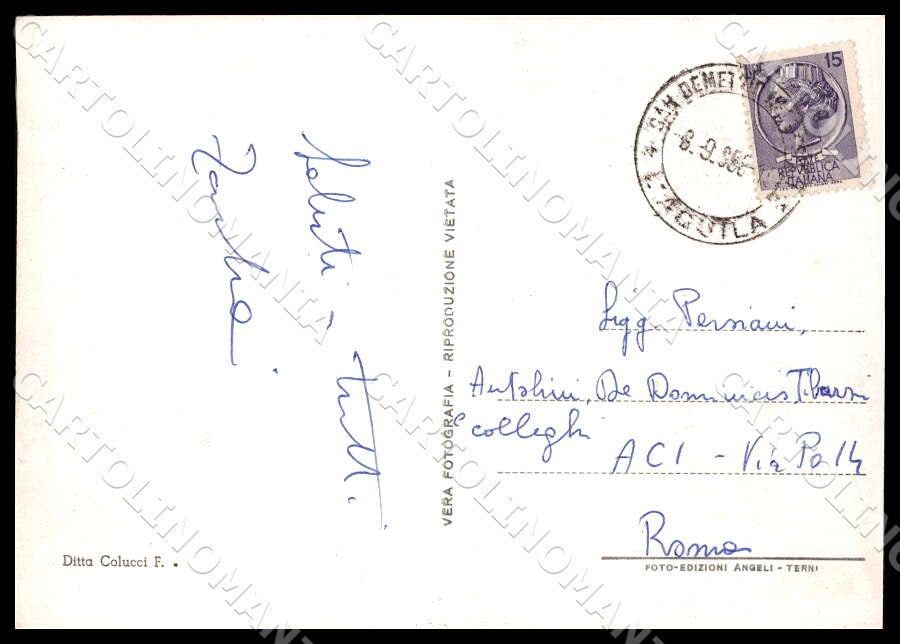 Saluti a
tutti.
15
LIRE
REPVBBLICA
ITALIANA
SAN DEMETRIO
8.9.956
L'AQUILA
VERA FOTOGRAFIA - RIPRODUZIONE VIETATA
Sigg. Persiani,
Antolini, De Dominicis Tiburzi
e colleghi
ACI - Via Po 14
Roma
Ditta Colucci F.
FOTO-EDIZIONI ANGELI - TERNI
CARTOLINOMANIA